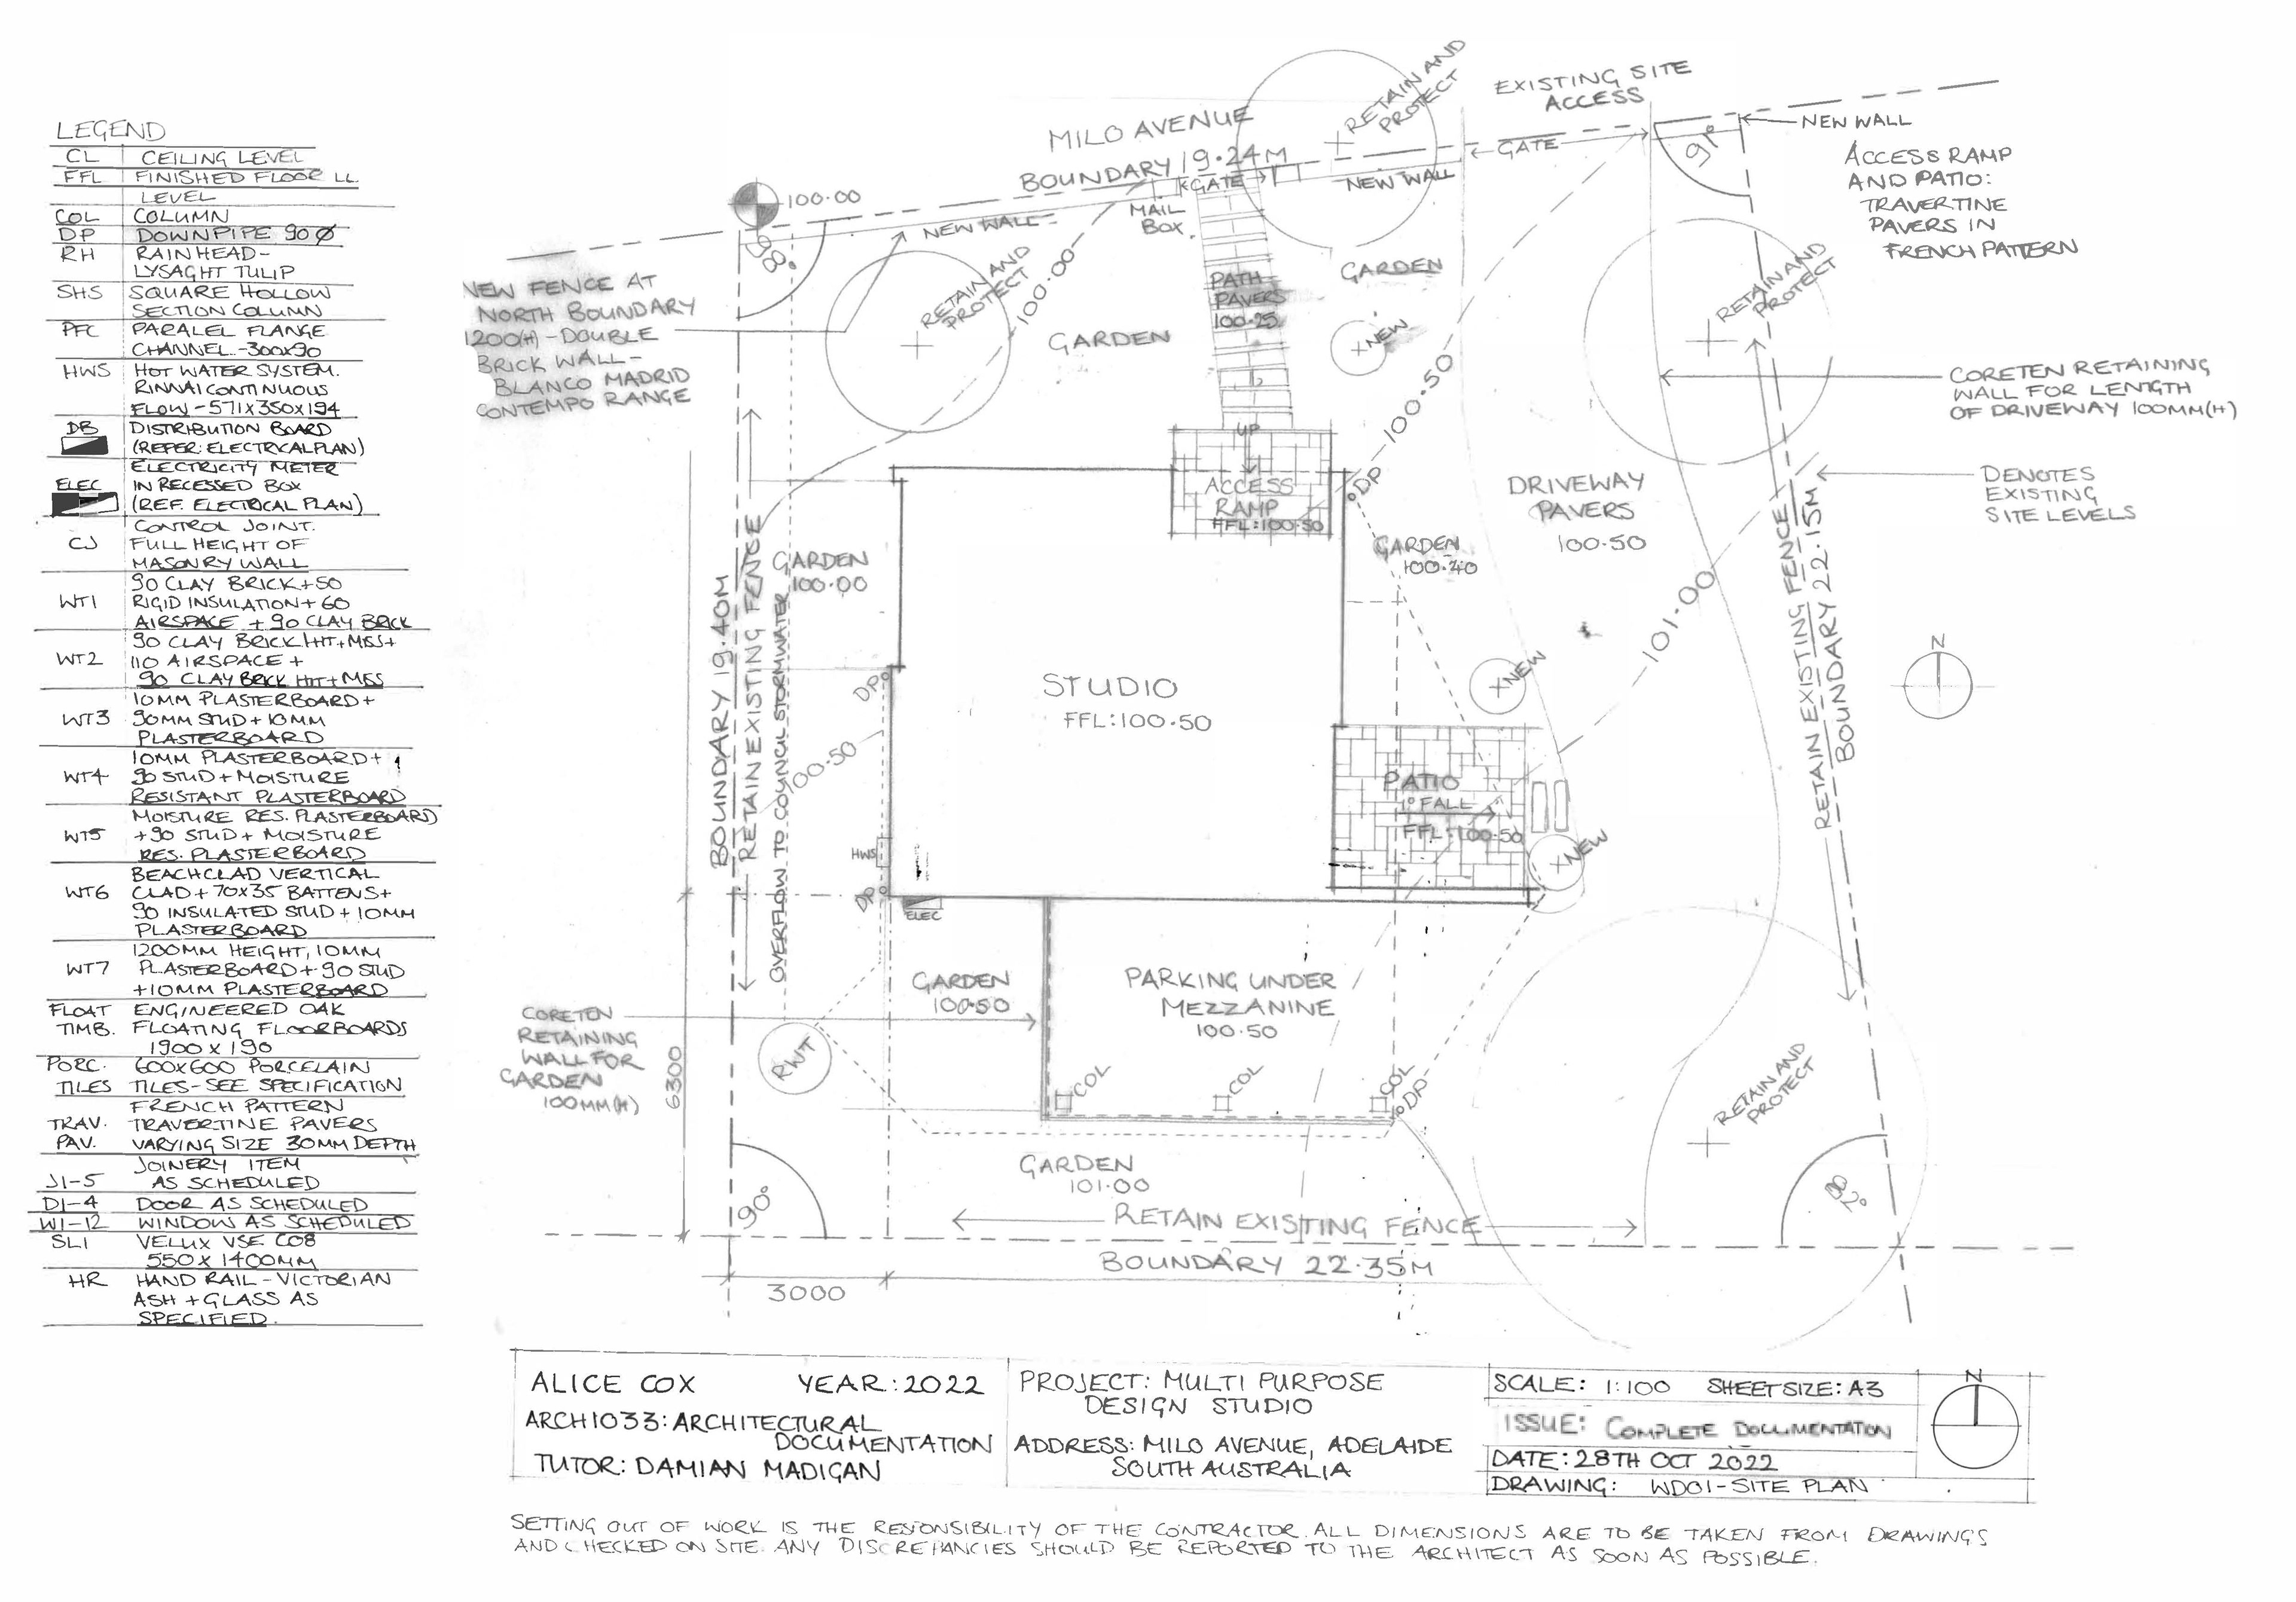 LEGEND
CL CEILING LEVEL
FFL FINISHED FLOOR LL
LEVEL
COL COLUMN
DP DOWNPIPE 90Ø
RH RAINHEAD-
LYSAGHT TULIP
SHS SQUARE HOLLOW
SECTION COLUMN
PFC PARALEL FLANGE
CHANNEL-300x90
HWS HOT WATER SYSTEM.
RINNAI CONTINUOUS
FLOW-571x350x194
DB DISTRIBUTION BOARD
(REFER: ELECTRICAL PLAN)
ELECTRICITY METER
ELEC IN RECESSED BOX
(REF. ELECTRICAL PLAN)
CONTROL JOINT.
CJ FULL HEIGHT OF
MASONRY WALL
90 CLAY BRICK+50
WT1 RIGID INSULATION+60
AIRSPACE + 90 CLAY BRICK
90 CLAY BRICK HIT+MISS+
WT2 110 AIRSPACE +
90 CLAY BRICK HIT+MISS
10MM PLASTERBOARD+
WT3 90MM STUD+10MM
PLASTERBOARD
10MM PLASTERBOARD+
WT4 90 STUD+MOISTURE
RESISTANT PLASTERBOARD
MOISTURE RES. PLASTERBOARD
WT5 +90 STUD+MOISTURE
RES. PLASTERBOARD
BEACHCLAD VERTICAL
WT6 CLAD+70x35 BATTENS+
90 INSULATED STUD+10MM
PLASTERBOARD
1200MM HEIGHT, 10MM
WT7 PLASTERBOARD+90 STUD
+10MM PLASTERBOARD
FLOAT ENGINEERED OAK
TIMB. FLOATING FLOORBOARDS
1900 x 190
PORC. 600x600 PORCELAIN
TILES TILES-SEE SPECIFICATION
FRENCH PATTERN
TRAV. TRAVERTINE PAVERS
PAV. VARYING SIZE 30MM DEPTH
JOINERY ITEM
J1-5 AS SCHEDULED
D1-4 DOOR AS SCHEDULED
W1-12 WINDOW AS SCHEDULED
SL1 VELUX VSE C08
550 x 1400MM
HR HAND RAIL-VICTORIAN
ASH+GLASS AS
SPECIFIED.
MILO AVENUE
BOUNDARY 19.24M
RETAIN AND
PROTECT
EXISTING SITE
ACCESS
GATE
91°
NEW WALL
ACCESS RAMP
AND PATIO:
TRAVERTINE
PAVERS IN
FRENCH PATTERN
100.00
88°
NEW WALL
MAIL
BOX.
GATE
NEW WALL
NEW FENCE AT
NORTH BOUNDARY
1200(H)-DOUBLE
BRICK WALL-
BLANCO MADRID
CONTEMPO RANGE
RETAIN AND
PROTECT
100.00
GARDEN
PATH
PAVERS
100.25
GARDEN
NEW
100.50
RETAIN AND
PROTECT
CORETEN RETAINING
WALL FOR LENGTH
OF DRIVEWAY 100MM(H)
DENOTES
EXISTING
SITE LEVELS
UP
ACCESS
RAMP
FFL:100.50
DP
DRIVEWAY
PAVERS
100.50
GARDEN
100.40
GARDEN
100.00
BOUNDARY 19.40M
RETAIN EXISTING FENCE
OVERFLOW TO COUNCIL STORMWATER
101.00
RETAIN EXISTING FENCE
BOUNDARY 22.15M
N
DP
STUDIO
FFL:100.50
NEW
100.50
PATIO
1° FALL
FFL:100.50
NEW
HWS
DP
ELEC
GARDEN
100.50
PARKING UNDER
MEZZANINE
100.50
CORETEN
RETAINING
WALL FOR
GARDEN
100MM(H)
6300
RWT
COL
COL
COL
DP
RETAIN AND
PROTECT
GARDEN
101.00
90°
82°
RETAIN EXISTING FENCE
BOUNDARY 22.35M
3000
ALICE COX YEAR:2022
ARCH1033:ARCHITECTURAL
DOCUMENTATION
TUTOR: DAMIAN MADIGAN
PROJECT: MULTI PURPOSE
DESIGN STUDIO
ADDRESS: MILO AVENUE, ADELAIDE
SOUTH AUSTRALIA
SCALE: 1:100 SHEET SIZE: A3
ISSUE: COMPLETE DOCUMENTATION
DATE: 28TH OCT 2022
DRAWING: WD01-SITE PLAN
N
SETTING OUT OF WORK IS THE RESPONSIBILITY OF THE CONTRACTOR. ALL DIMENSIONS ARE TO BE TAKEN FROM DRAWINGS
AND CHECKED ON SITE. ANY DISCREPANCIES SHOULD BE REPORTED TO THE ARCHITECT AS SOON AS POSSIBLE.